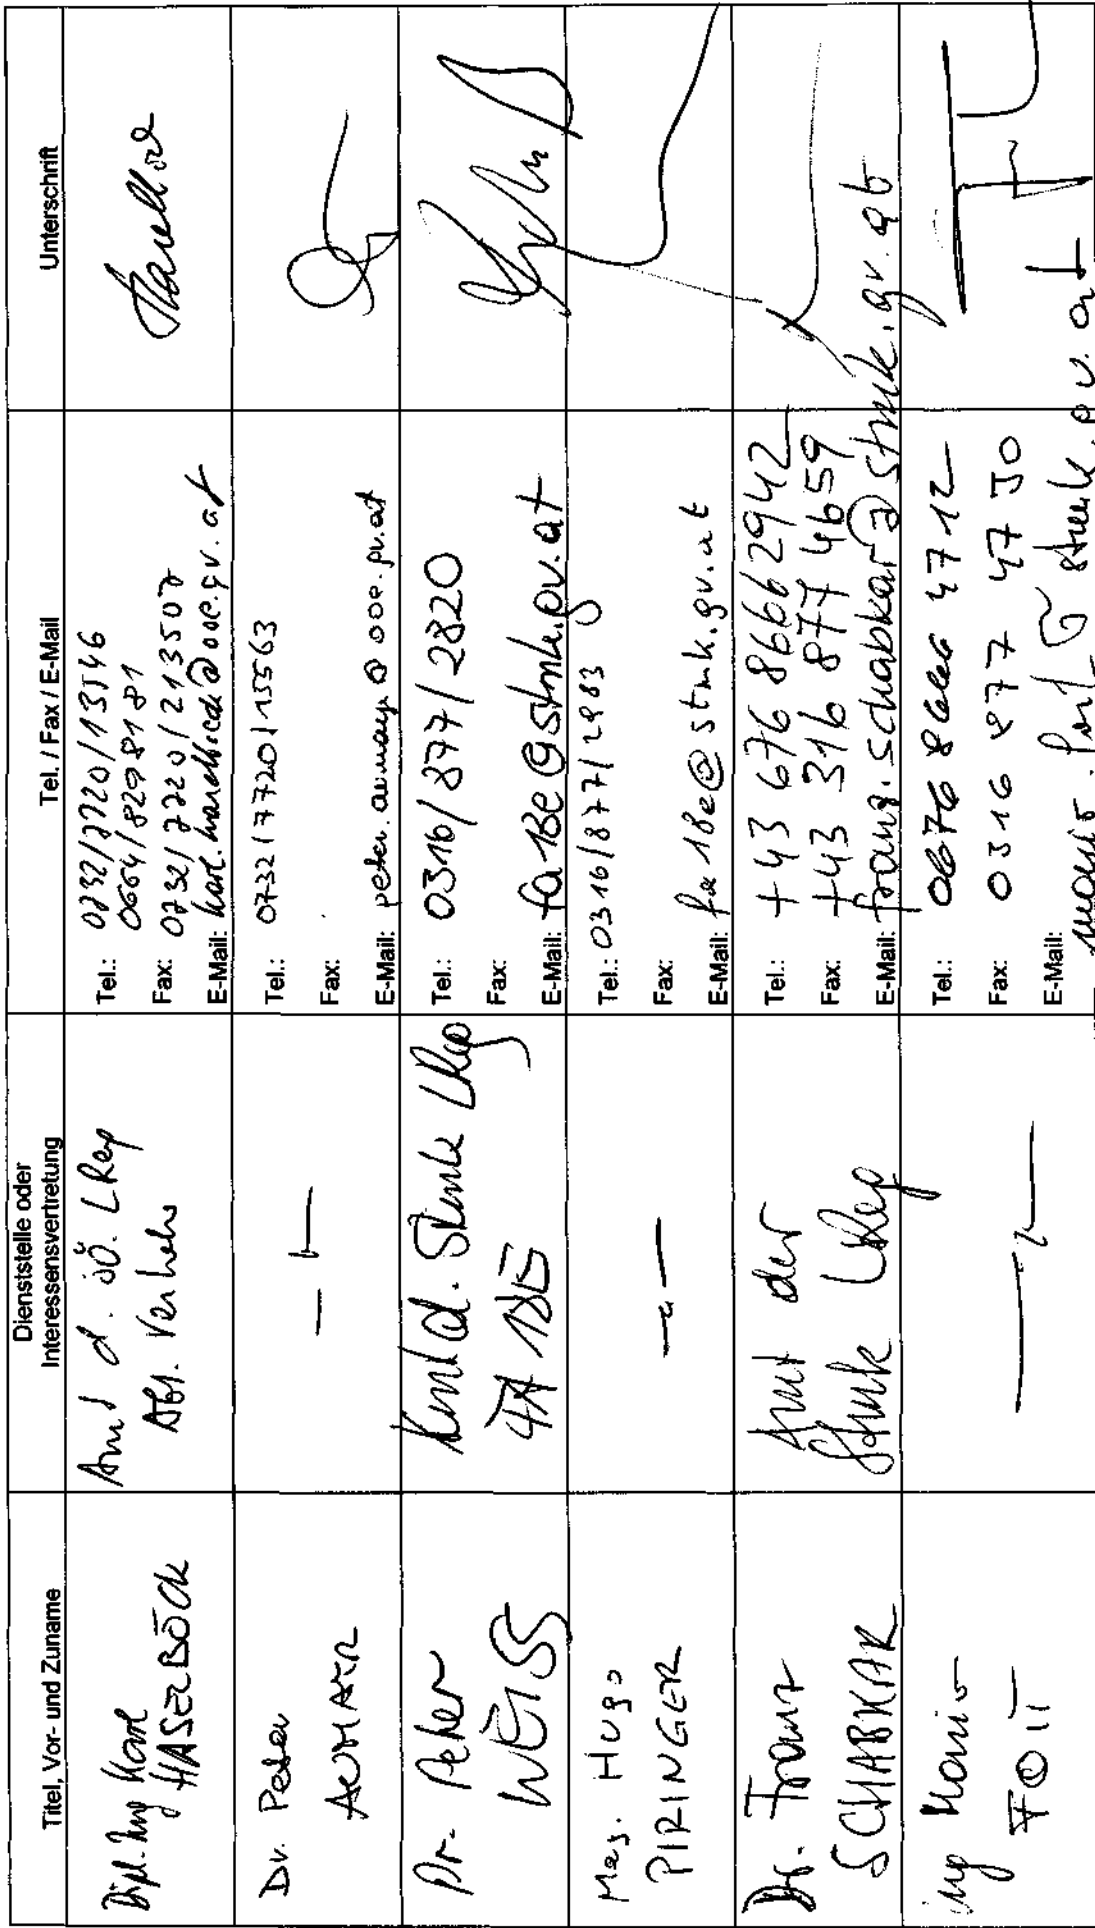 Titel, Vor- und Zuname
Dienststelle oder
Interessensvertretung
Tel. / Fax / E-Mail
Unterschrift
Dipl. Ing Karl
HASELBÖCK
Amt d. oö. LReg
Abt. Verkehr
Tel.: 0732/7720/13546
0664/8298181
Fax: 0732/7720/213507
E-Mail: karl.haselboeck@ooe.gv.at
Dr. Peter
AUMAYR
Tel.: 0732/7720/15563
Fax:
E-Mail: peter.aumayr@ooe.gv.at
Dr. Peter
WEISS
Amt d. Stmk LReg
FA 18E
Tel.: 0316/877/2820
Fax:
E-Mail: fa18e@stmk.gv.at
Mag. Hugo
PIRINGER
Tel.: 0316/877/2983
Fax:
E-Mail: fa18e@stmk.gv.at
Dr. Franz
SCHABKAR
Amt der
Stmk LReg
Tel.: +43 676 86662942
Fax: +43 316 877 4659
E-Mail: franz.schabkar@stmk.gv.at
Ing Mario
Tel.: 0676 8666 4712
Fax: 0316 877 47 30
E-Mail: stmk.gv.at